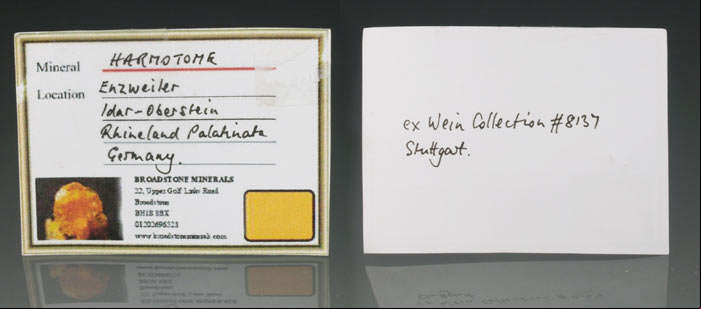 Mineral HARMOTOME
Location Enzweiler
Idar-Oberstein
Rhineland Palatinate
Germany.
BROADSTONE MINERALS
22, Upper Golf Links Road
Broadstone
BH18 8BX
01202696323
www.broadstoneminerals.com
ex Wein Collection #8137
Stuttgart.